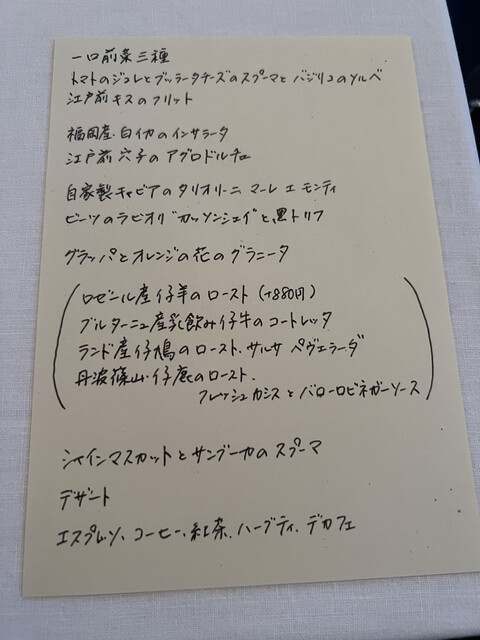 一口前菜三種
トマトのジュレとブッラータチーズのスプーマとバジリコのソルベ
江戸前キスのフリット
福岡産・白イカのインサラータ
江戸前穴子のアグロドルチェ
自家製キャビアのタリオリーニ マーレ エ モンティ
ビーツのラビオリ"カッソンシェイ"と黒トリフ
グラッパとオレンジの花のグラニータ
ロゼール産仔羊のロースト (+880円)
ブルターニュ産乳飲み仔牛のコートレッタ
ランド産仔鳩のロースト、サルサ ペヴェラーダ
丹波篠山・仔鹿のロースト、
フレッシュカシスとバローロビネガーソース
シャインマスカットとサンブーカのスプーマ
デザート
エスプレッソ、コーヒー、紅茶、ハーブティ、デカフェ